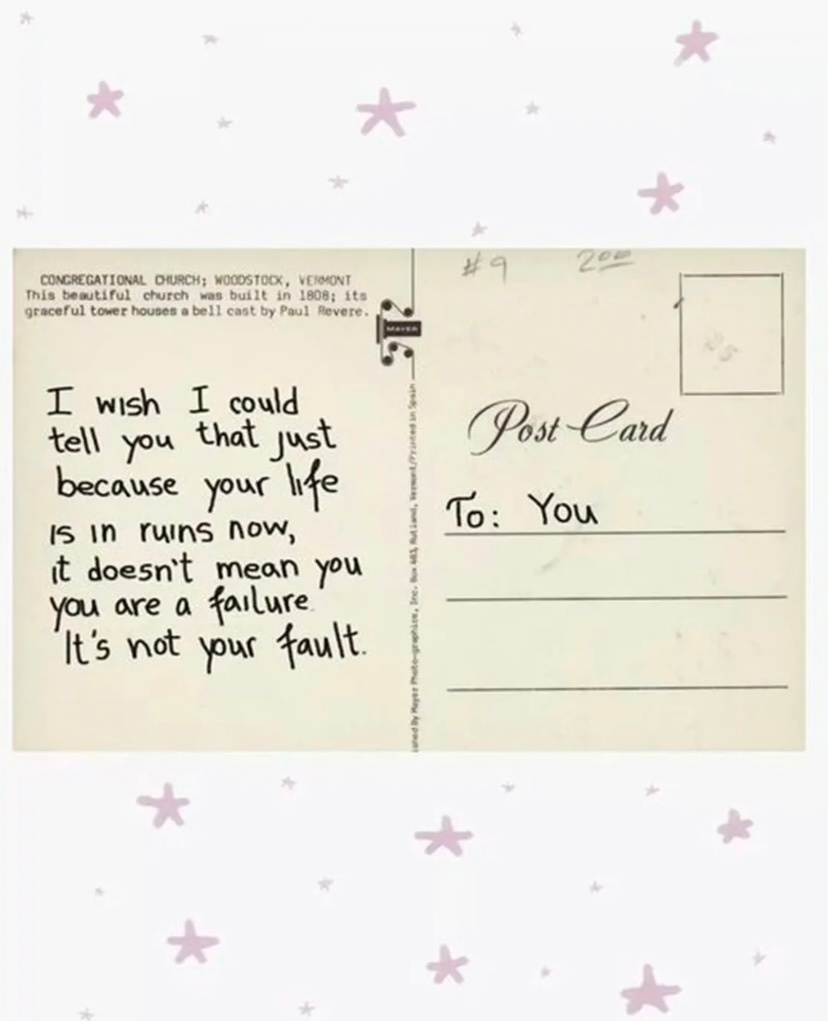 CONGREGATIONAL CHURCH; WOODSTOCK, VERMONT
This beautiful church was built in 1808; its
graceful tower houses a bell cast by Paul Revere.
I wish I could
tell you that just
because your life
is in ruins now,
it doesn't mean you
you are a failure.
It's not your fault.
MAYER
ished By Mayer Photo-graphics, Inc. Box 483, Rutland, Vermont/Printed in Spain
#9 200
Post Card
To: You